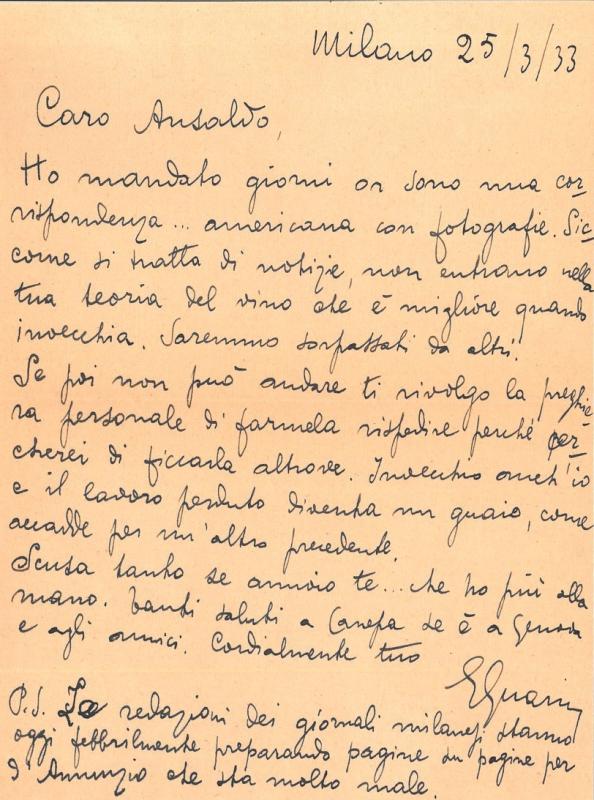 Milano 25/3/33
Caro Ansaldo,
Ho mandato giorni or sono una cor-
rispondenza... americana con fotografie. Sic-
come si tratta di notizie, non entrano nella
tua teoria del vino che è migliore quando
invecchia. Saremmo sorpassati da altri.
Se poi non può andare ti rivolgo la preghie-
ra personale di farmela rispedire perché cer-
cherei di ficcarla altrove. Invecchio anch'io
e il lavoro perduto diventa un guaio, come
accadde per un'altra precedente.
Scusa tanto se annoio te... che ho più alla
mano. Tanti saluti a Canepa se è a Genova
e agli amici. Cordialmente tuo
P.S. Le redazioni dei giornali milanesi stanno
oggi febbrilmente preparando pagine su pagine per
d'Annunzio che sta molto male.